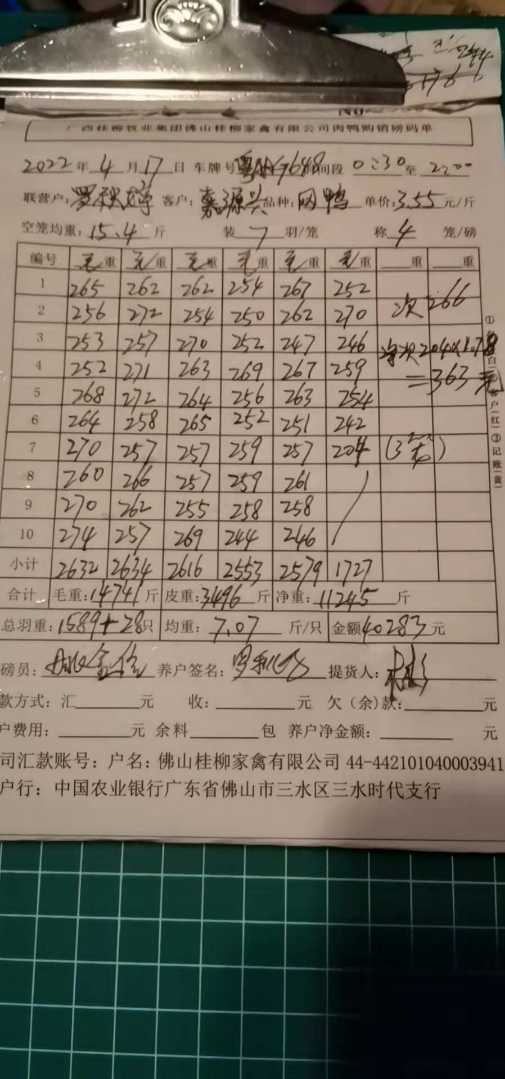 广西桂柳牧业集团佛山桂柳家禽有限公司肉鸭购销磅码单
2022年4月17日 车牌号 间段 0:30至2:00
联营户: 客户:源兴 品种:网鸭 单价:3.55元/斤
空笼均重:15.4斤 装7羽/笼 称4笼/磅
编号 毛重 毛重 毛重 毛重 毛重 毛重 重 重
1 265 262 262 254 267 252
2 256 272 254 250 262 270 次266
3 253 257 270 252 247 246 204×1.78
4 252 271 263 269 267 259 =363元
5 268 272 264 256 263 254
6 264 258 265 252 251 242
7 270 257 257 259 257 204 (3笼)
8 260 266 257 259 261
9 270 262 255 258 258
10 274 257 269 244 246
小计 2632 2634 2616 2553 2579 1727
合计 毛重:14741斤 皮重:3496斤 净重:11245斤
总羽重:1589+28只 均重:7.07斤/只 金额40283元
磅员: 养户签名: 提货人:
款方式:汇 元 收: 元 欠(余)款: 元
户费用: 元 余料 包 养户净金额: 元
司汇款账号:户名:佛山桂柳家禽有限公司 44-442101040003941
户行:中国农业银行广东省佛山市三水区三水时代支行